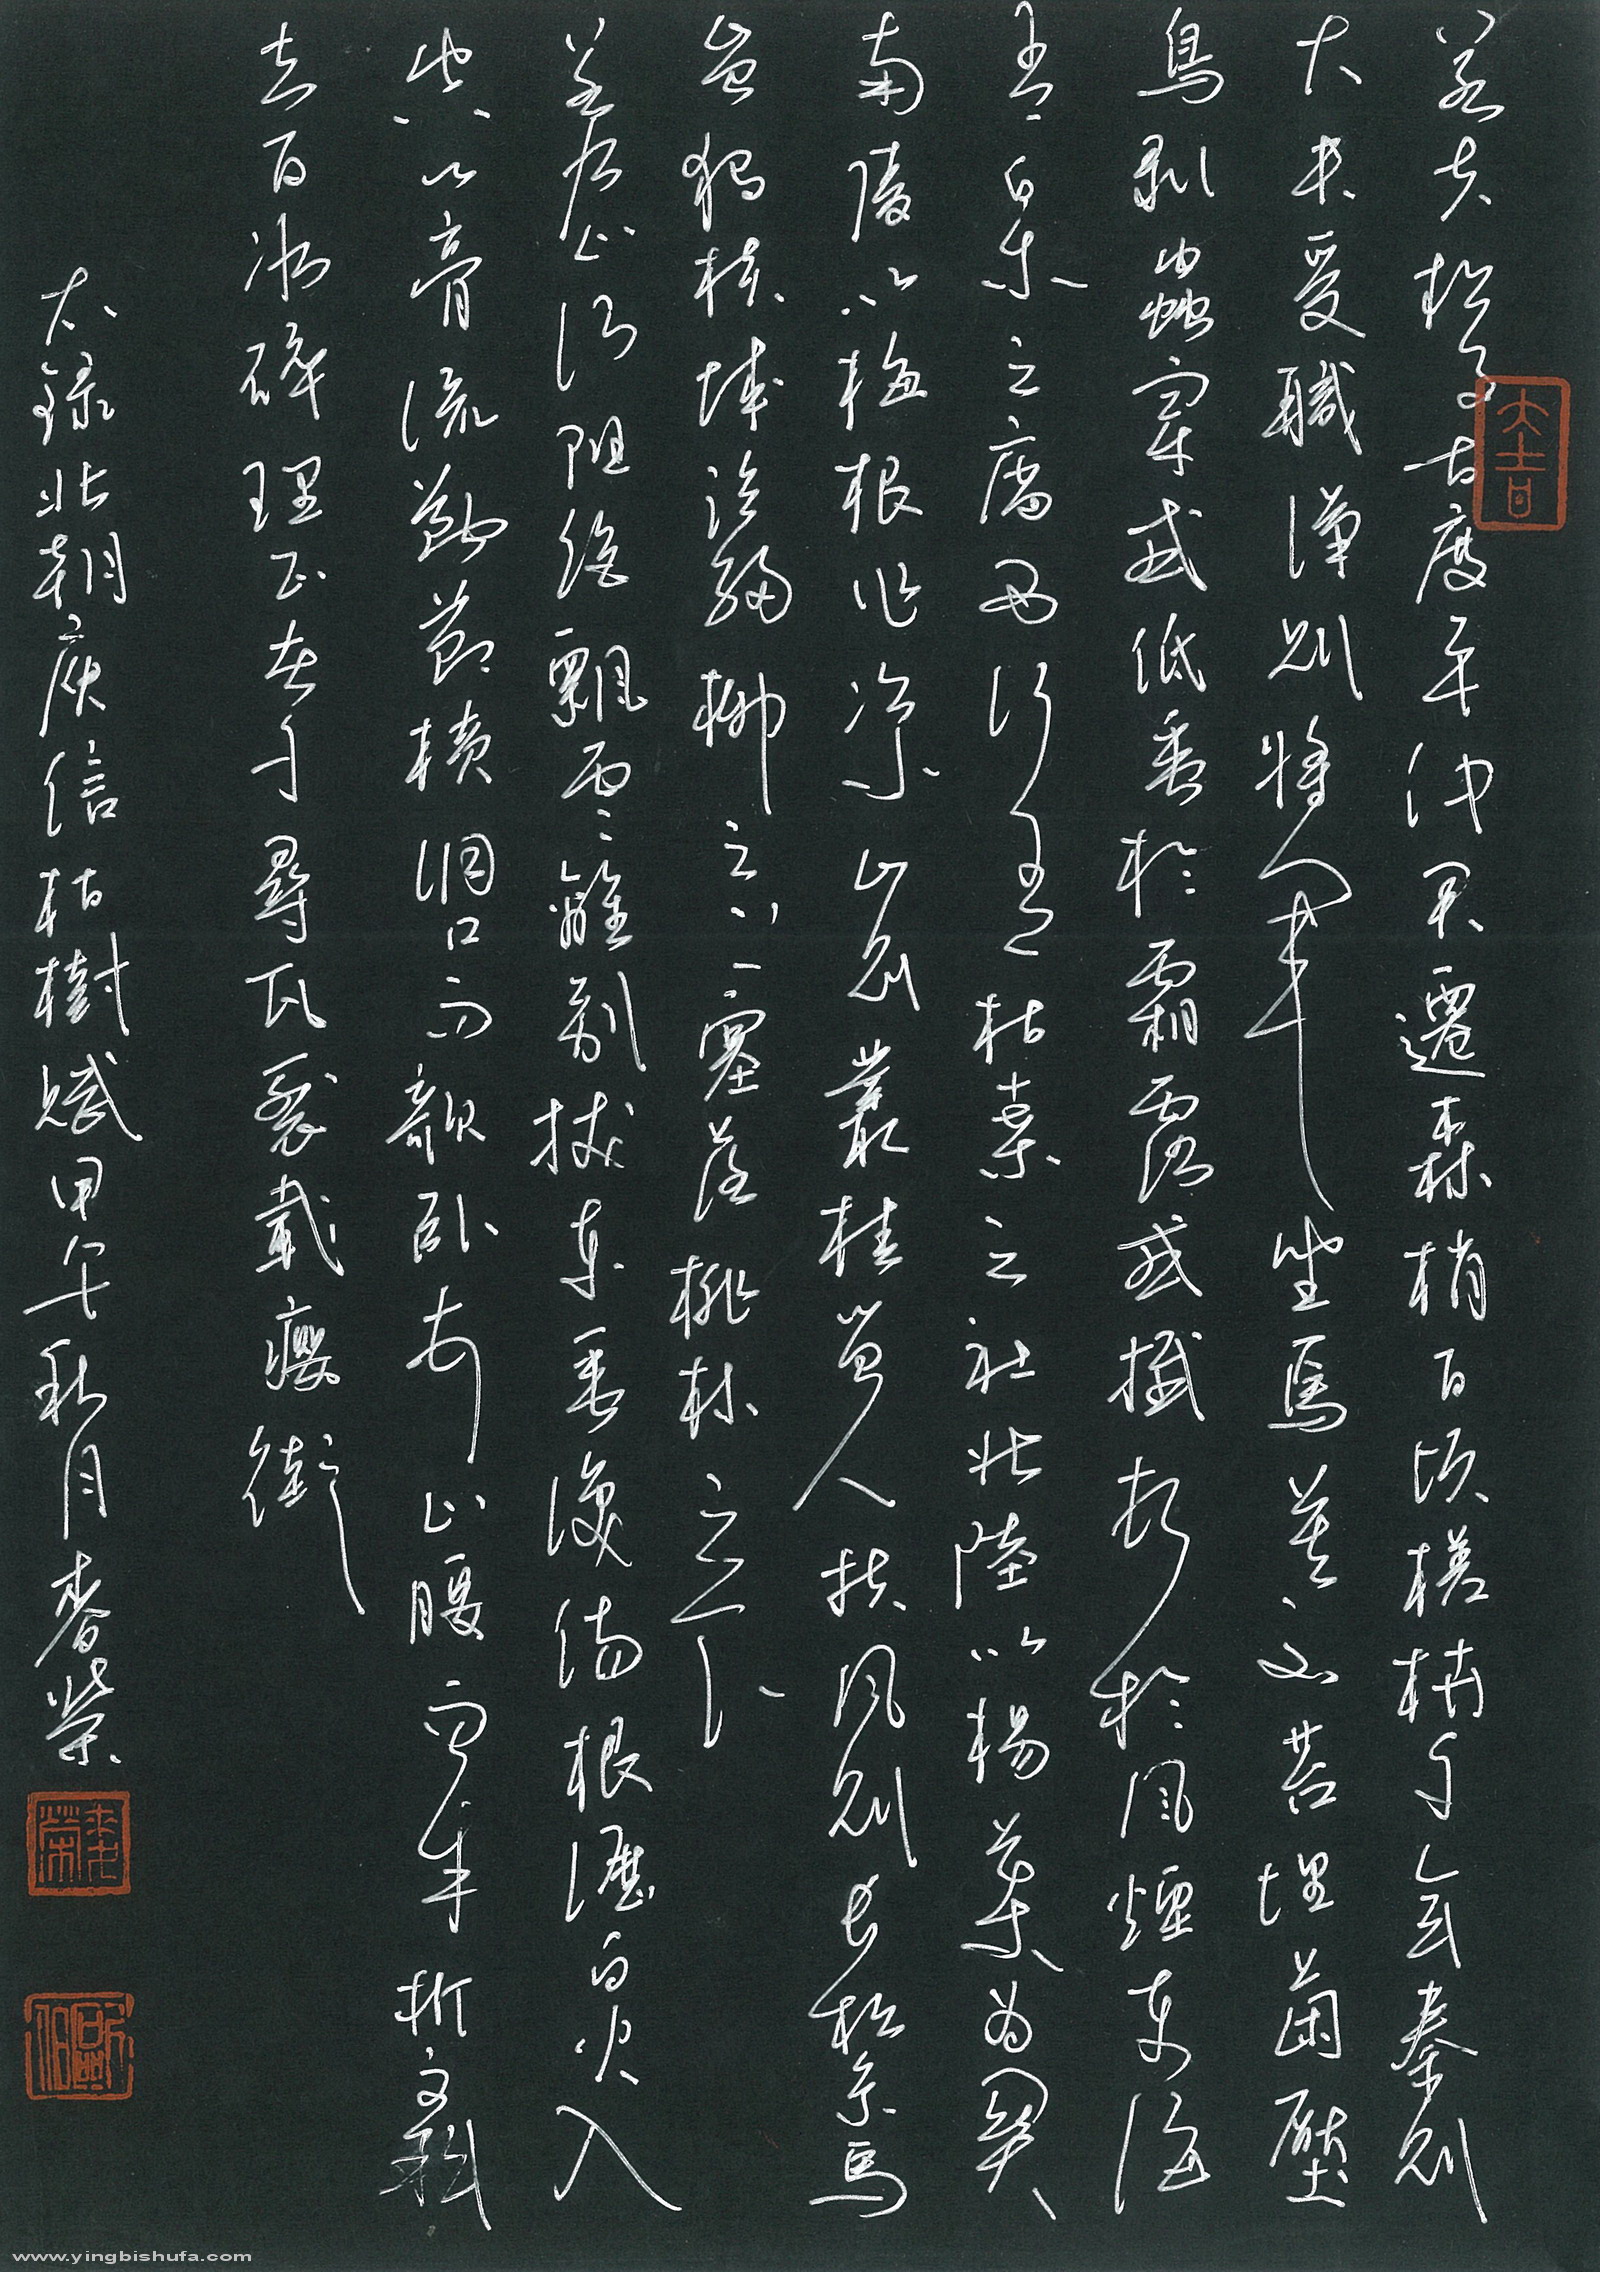 若夫松子古度平仲君遷森梢百頃槎枿千年秦則
大夫受職漢則將軍坐焉莫不苔埋菌壓
鳥剝蟲穿或低垂於霜露或撼頓於風煙東海
有白木之廟西河有枯桑之社北陸以楊葉為關
南陵以梅根作冶小山則叢桂留人扶風則長松繫馬
豈獨城臨細柳之上塞落桃林之下
若乃山河阻絕飄零離別拔本垂淚傷根瀝血火入
空心膏流斷節橫洞口而敧臥頓山腰而半折文斜
者百圍冰碎理正者千尋瓦裂載癭銜
太錄北朝庾信枯樹賦甲午秋月春榮
大吉
www.yingbishufa.com